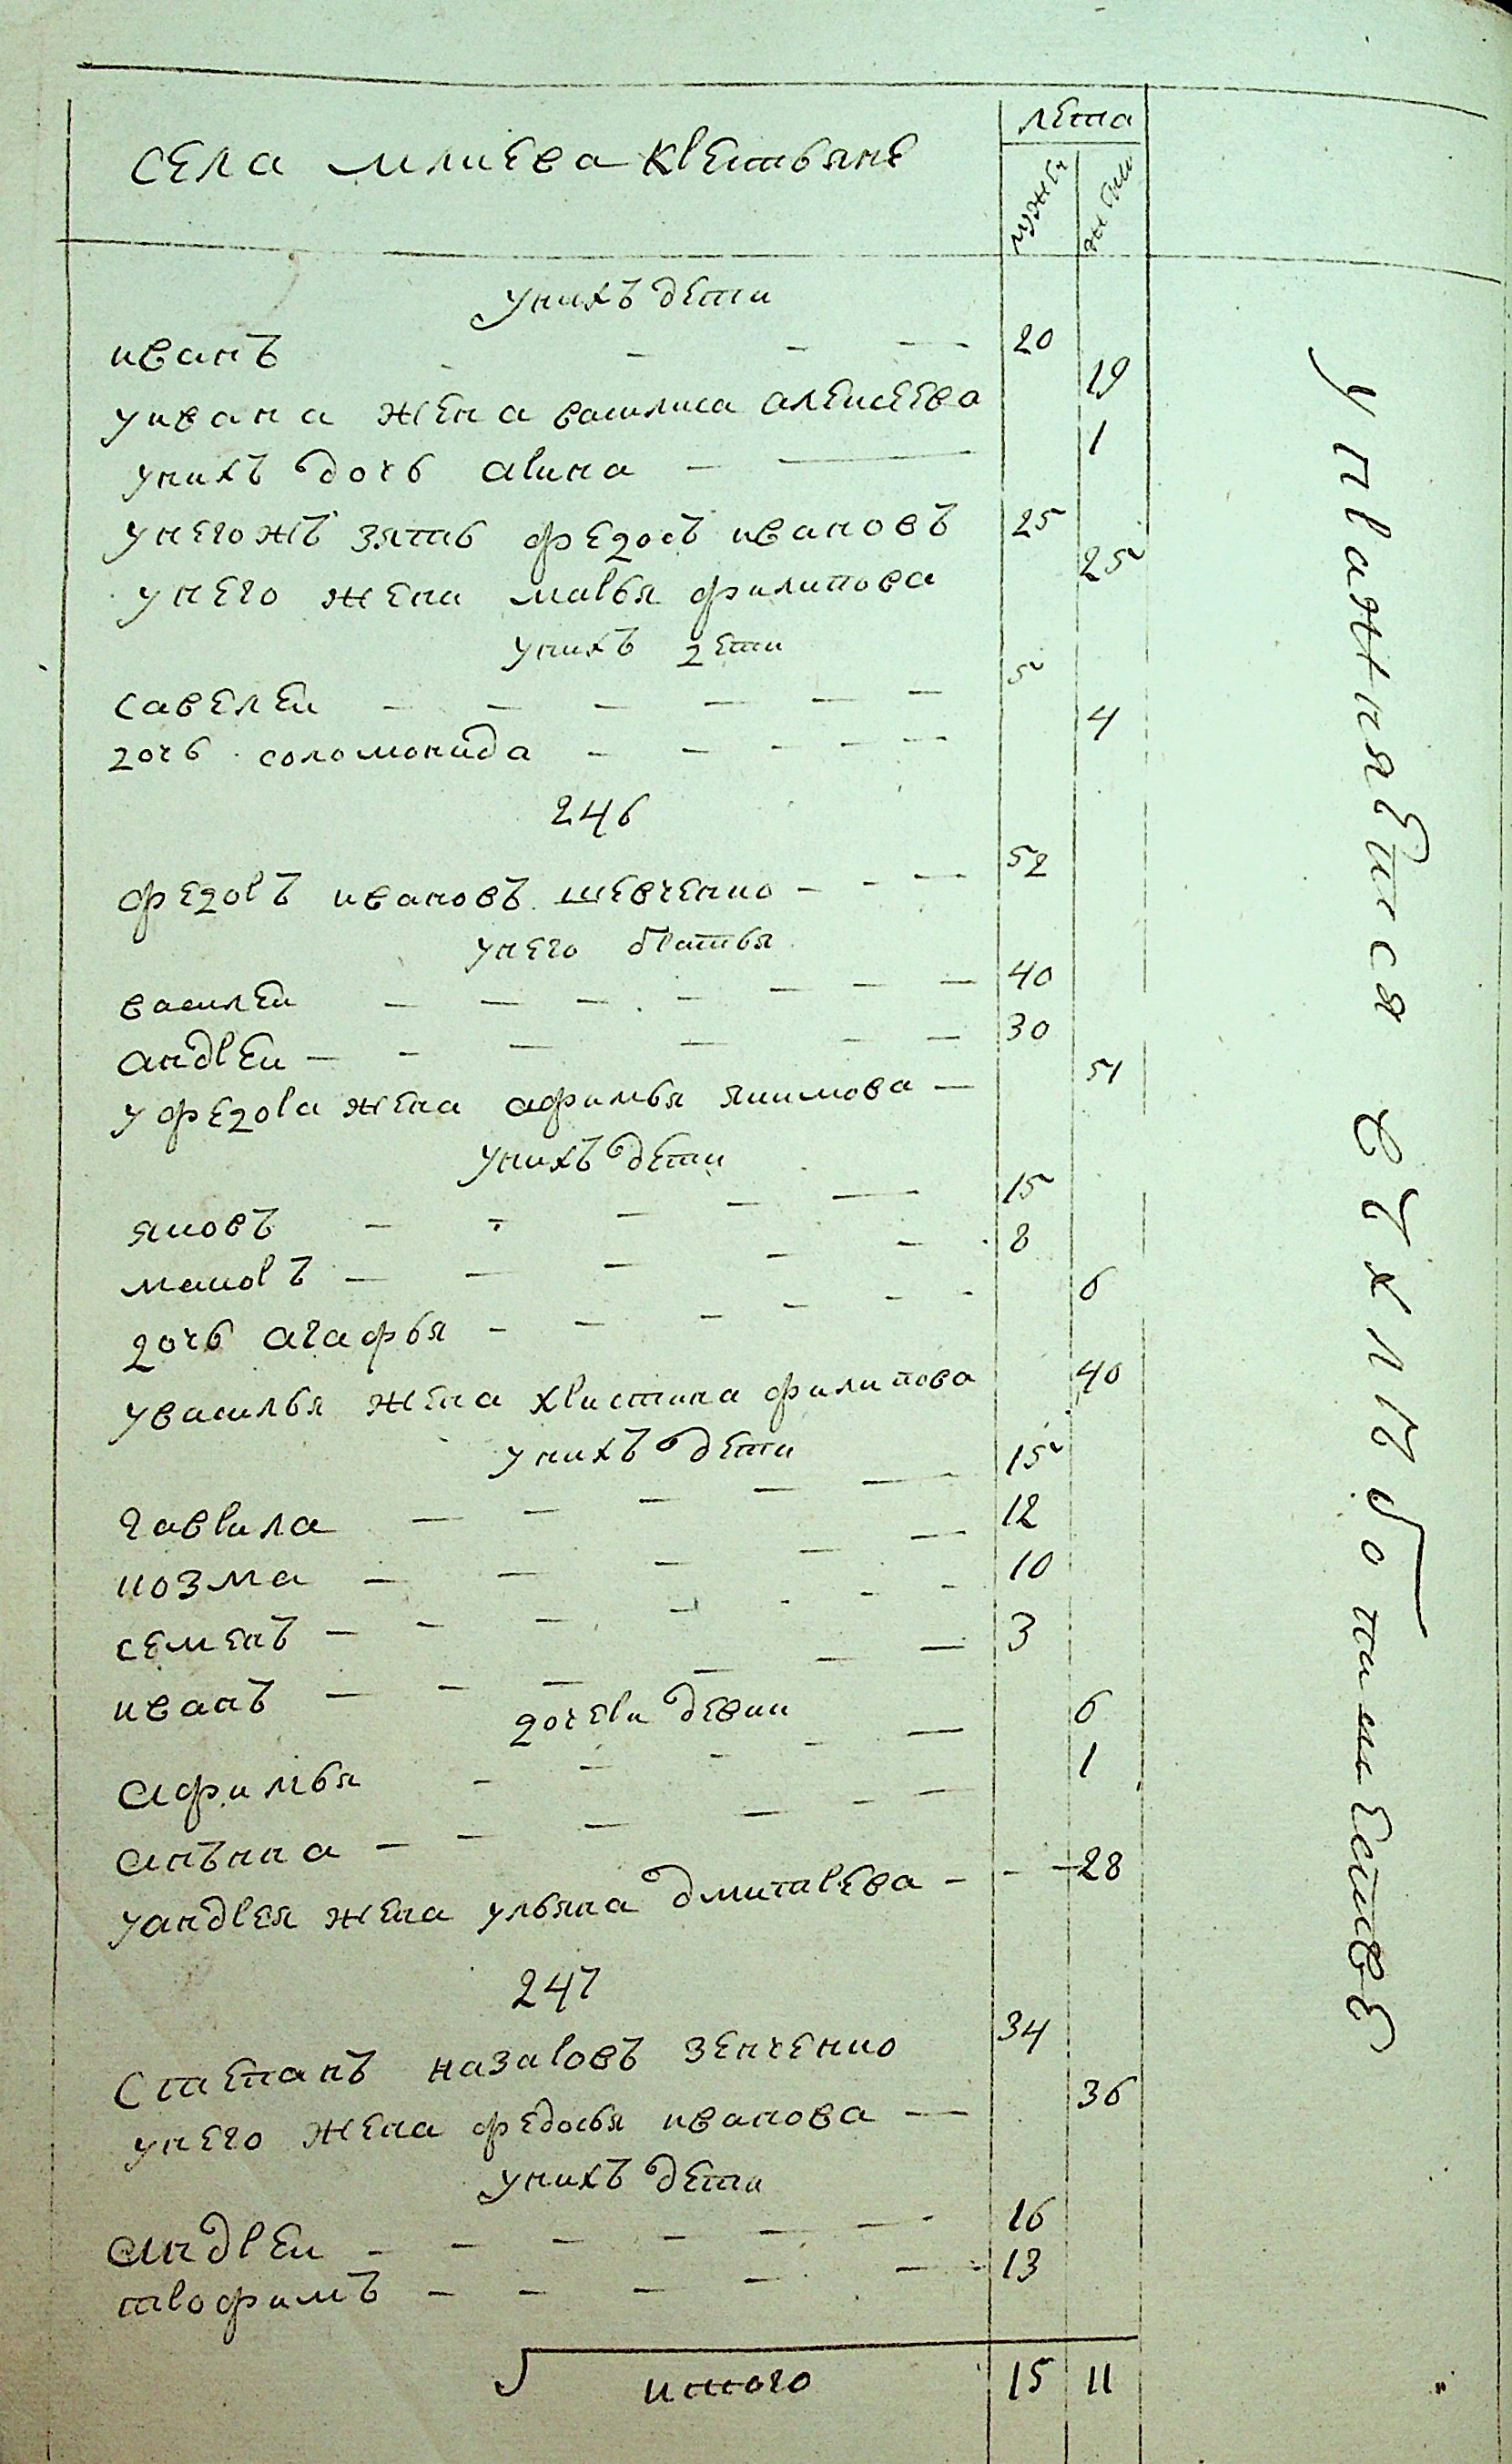 села млиева крестьяне
лета
мужеи
женъи
у нихъ дети
иванъ - - - 20
у ивана жена василиса алексеева 19
у нихъ дочь арина - - 1
у негожъ зять федосъ ивановъ 25
у него жена марья филипова 25
у нихъ дети
савелеи - - - - - - 5
дочь соломонида - - - - - 4
246
федоръ ивановъ шевченко - - - 52
у него братья
василеи - - - - - - - 40
андреи - - - - - - 30
у федора жена афимья якимова - 51
у нихъ дети
яковъ - - - - - 15
макаръ - - - - - - 8
дочь агафья - - - - - - 6
у василья жена христина филипова 40
у нихъ дети
гаврила - - - - - 15
козма - - - - - 12
семенъ - - - - - - - 10
иванъ - - - - - - 3
дочери девки
афимья - - - - - 6
анъна - - - - - - 1
у андрея жена ульяна дмитрева - - - 28
247
степанъ назаровъ зенченко 34
у него жена федосья иванова - 36
у нихъ дети
андреи - - - - - - 16
трофимъ - - - - - 13
итого 15 11
упражняеттся в хлебопашестве